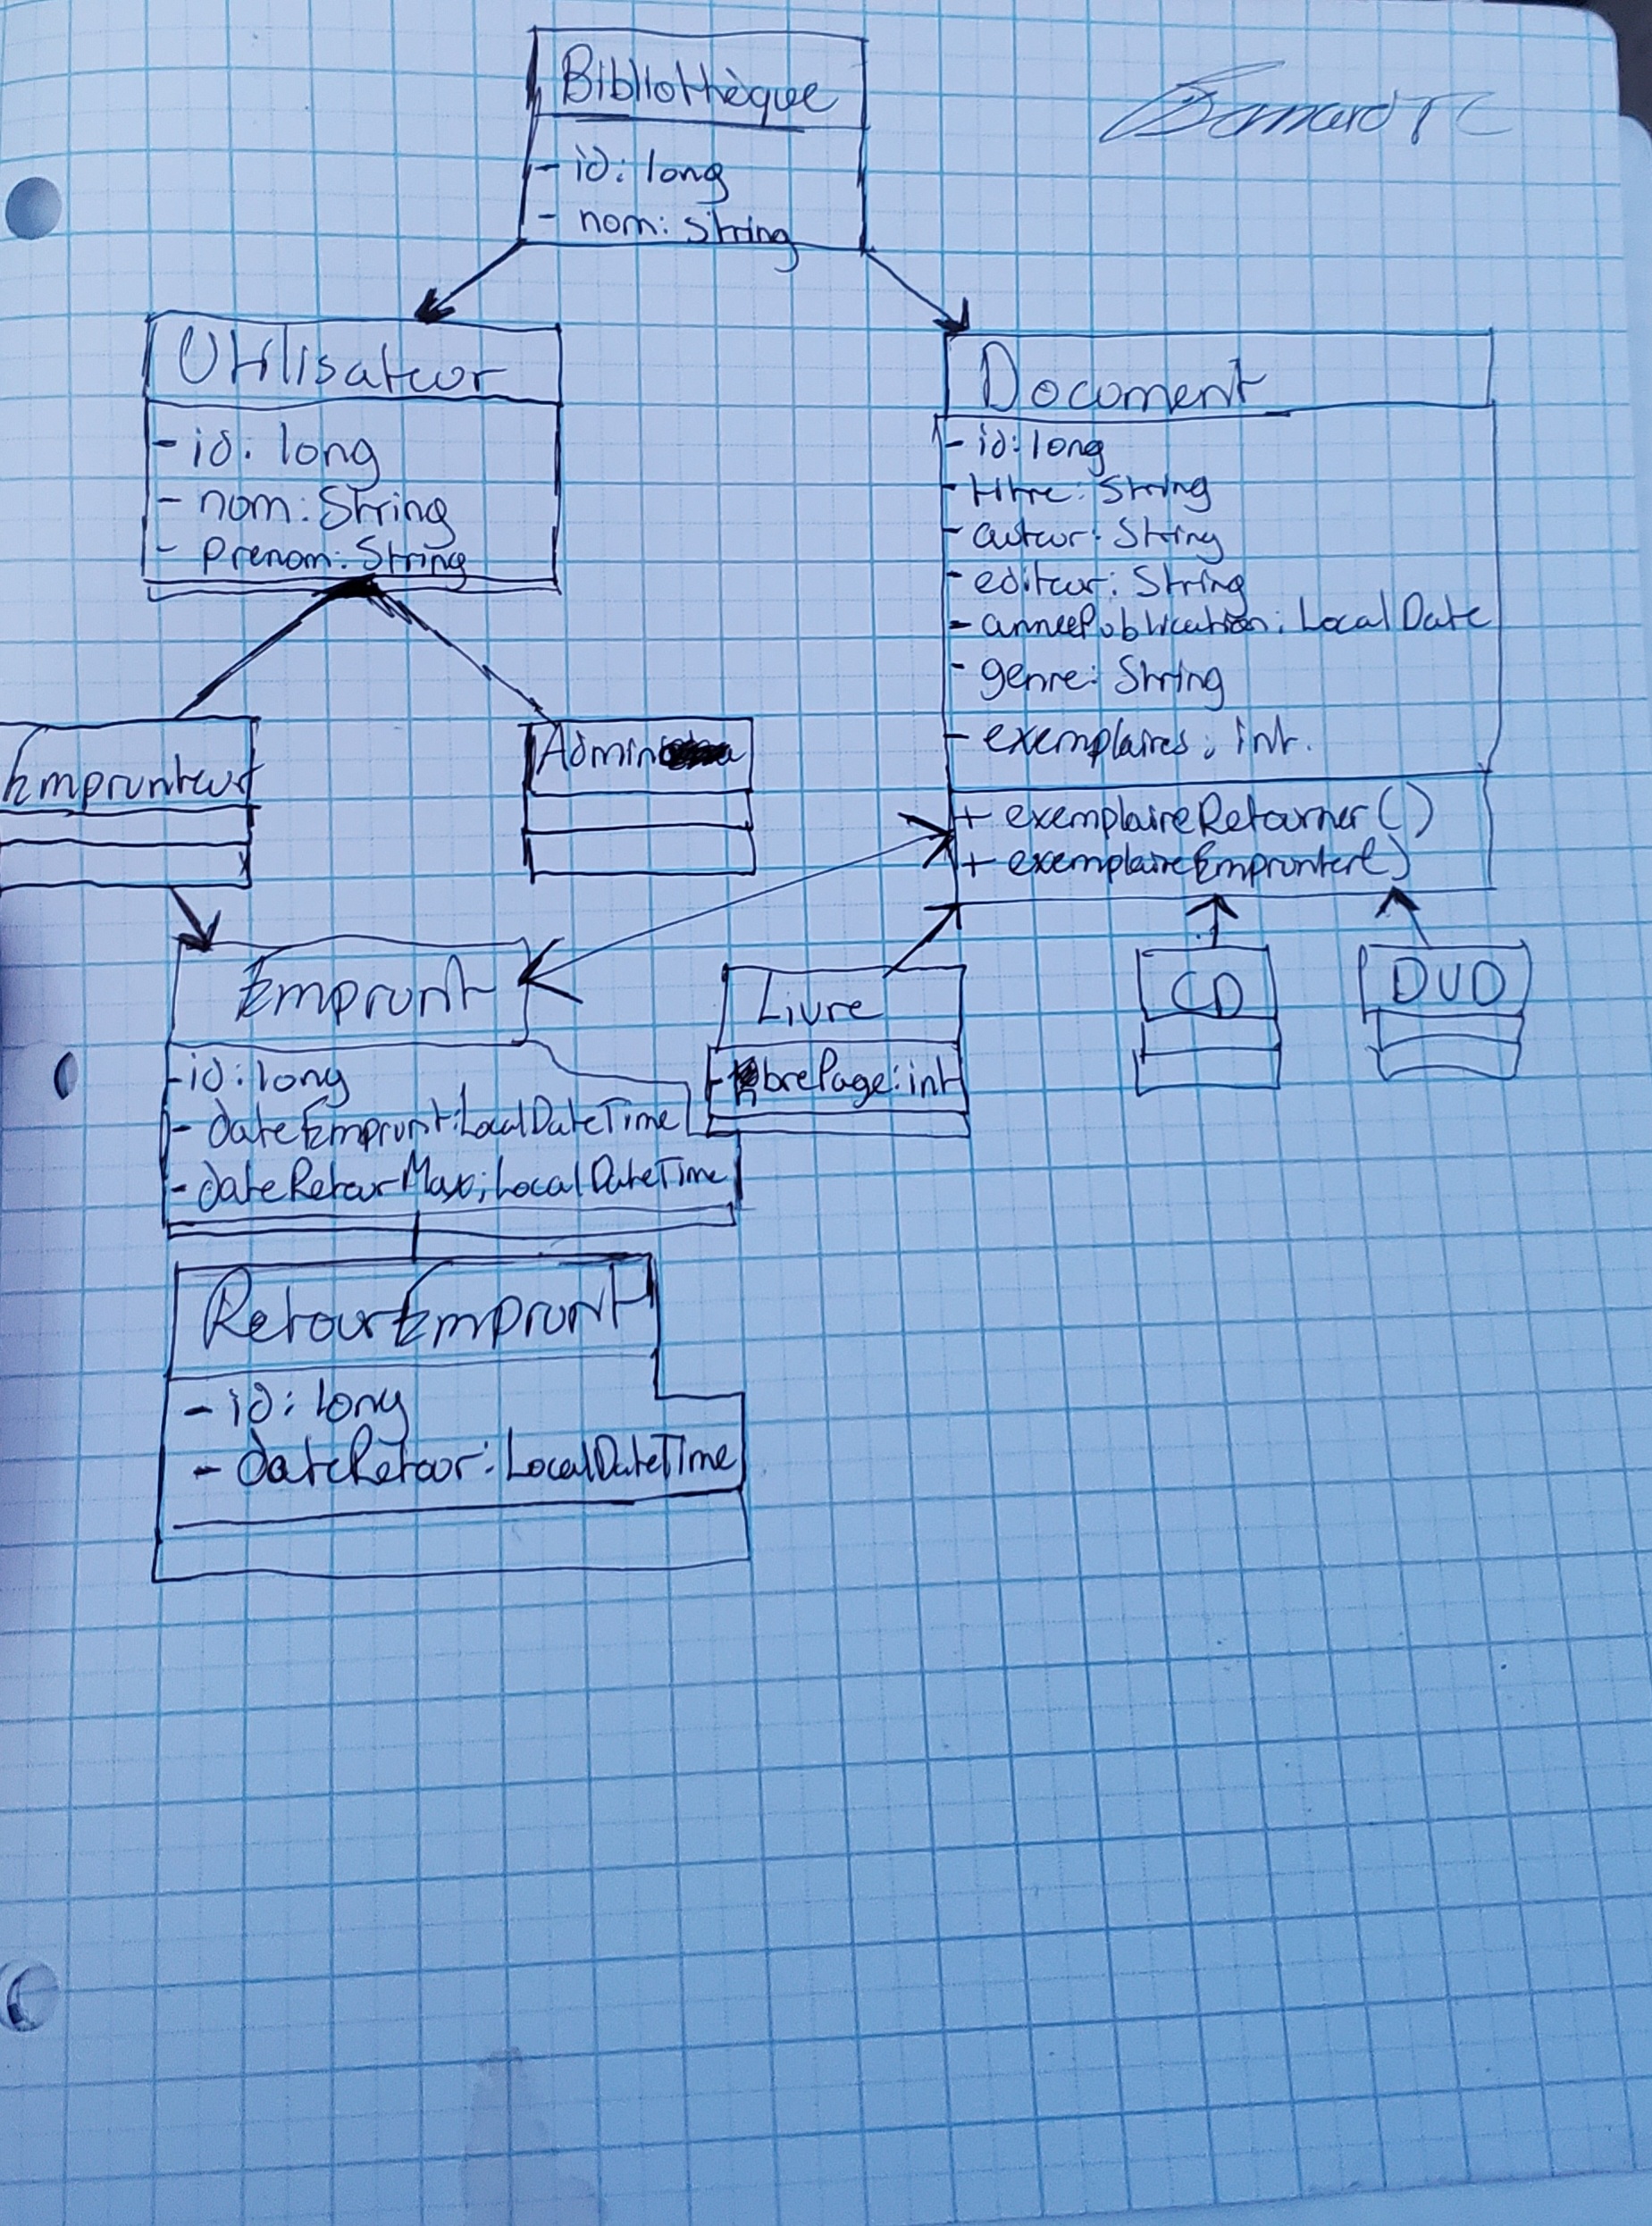 Bibliothèque
- id: long
- nom: String
Utilisateur
- id: long
- nom: String
- prenom: String
Document
- id: long
- titre: String
- auteur: String
- editeur: String
- anneePublication: LocalDate
- genre: String
- exemplaires: int.
+ exemplaireRetourner()
+ exemplaireEmprunter()
Emprunteur
Admin
Emprunt
- id: long
- dateEmprunt: LocalDateTime
- dateRetourMax: LocalDateTime
Livre
- nbrePage: int
CD
DVD
RetourEmprunt
- id: long
- dateRetour: LocalDateTime